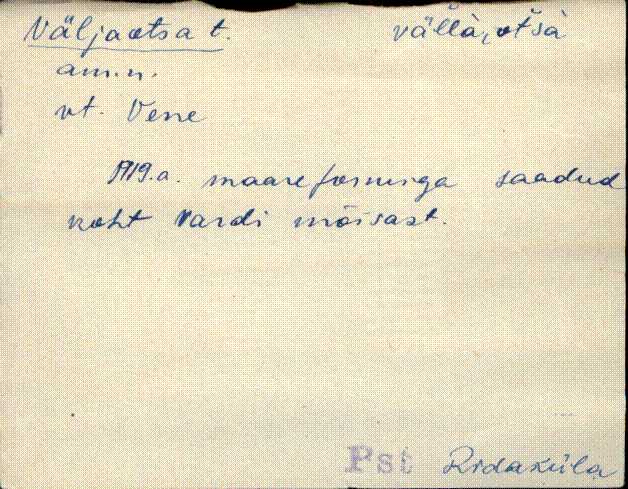 Väljaotsa t. väĺĺà, oťšà
am.n.
vt. Vene
1919.a. maareformiga saadud
koht Vardi mõisast.
Pst Ridaküla